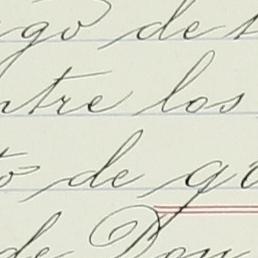 go de
ntre los
to de go
de Don